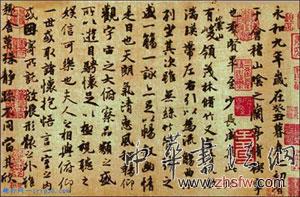 永和九年歲在癸丑暮春之初
于會稽山陰之蘭亭脩稧事
也群賢畢至少長咸
有崇山峻領茂林脩竹
湍暎帶左右引以為流觴曲
列坐其次雖無絲竹管
盛一觴一詠亦足以暢敘幽情
是日也天朗氣清惠風
觀宇宙之大俯察品類之盛
所以遊目騁懷足以極視聽
娛信可樂也夫人之相與俯仰
一世或取諸懷抱悟言一室之內
或因寄所託放浪形骸之外雖
趣舍萬殊靜躁不同當其欣
中華書法網
www.zhsfw.com